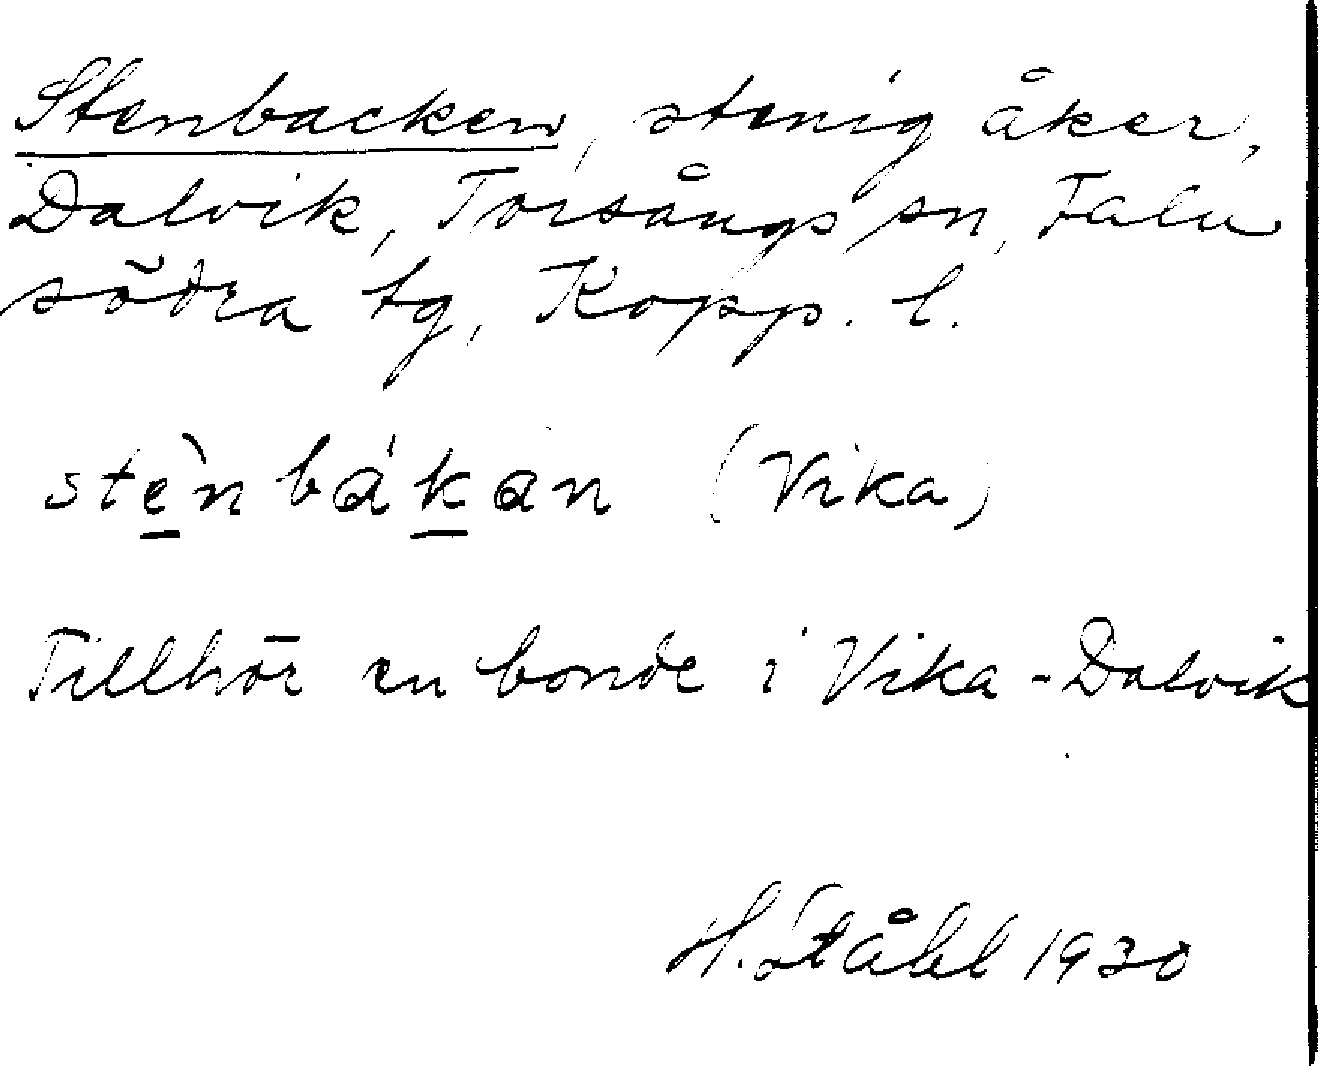 Stenbacken, stenig åker,
Dalvik, Torsångs sn, Falu
södra tg, Kopp. l.
stènbákan (Vika)
Tillhör en bonde i Vika-Dalvik
H. Ståhl 1930